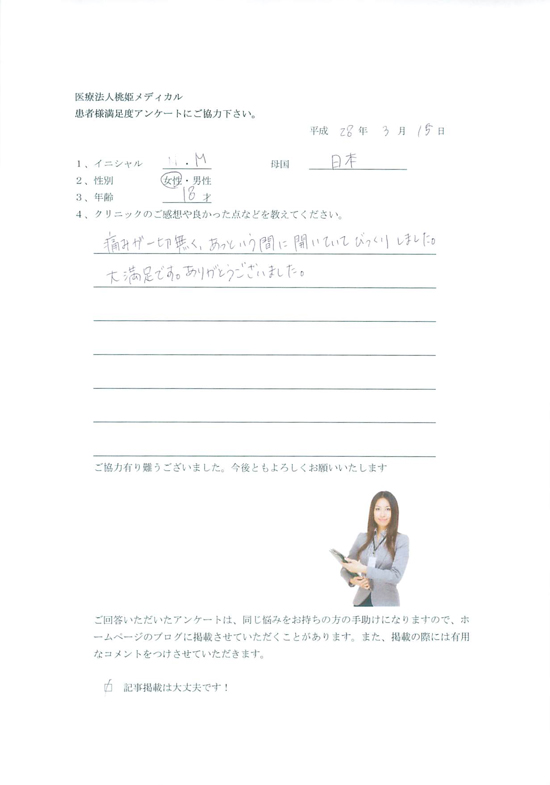 医療法人桃姫メディカル
患者様満足度アンケートにご協力下さい。
平成 28 年 3 月 15 日
1、イニシャル ・M 母国 日本
2、性別 女性・男性
3、年齢 18 才
4、クリニックのご感想や良かった点などを教えてください。
痛みが一切無く、あっという間に開いていてびっくりしました。
大満足です。ありがとうございました。
ご協力有り難うございました。今後ともよろしくお願いいたします
ご回答いただいたアンケートは、同じ悩みをお持ちの方の手助けになりますので、ホ
ームページのブログに掲載させていただくことがあります。また、掲載の際には有用
なコメントをつけさせていただきます。
記事掲載は大丈夫です！